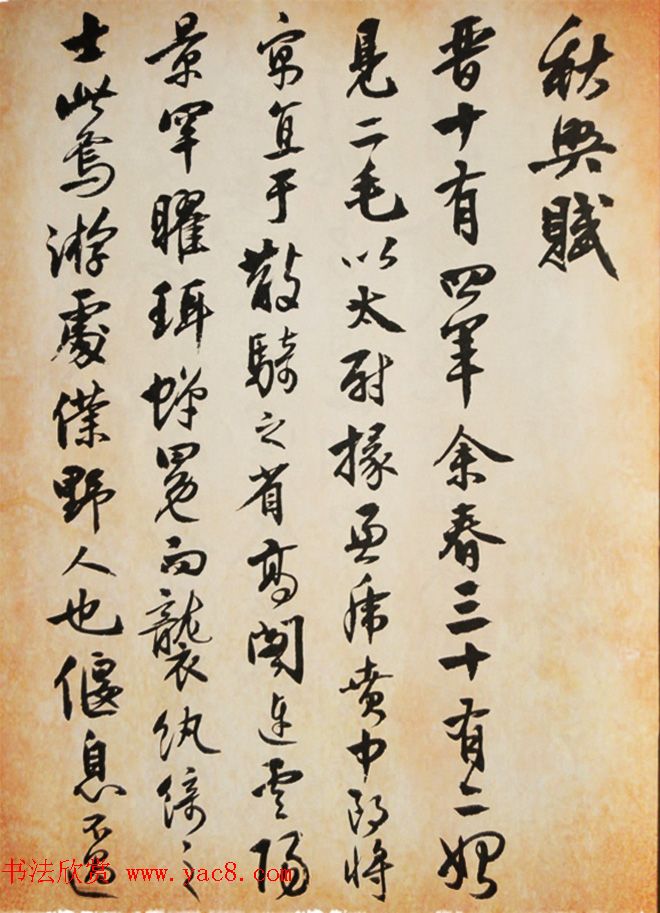 秋興賦
晋十有四年余春三十有二始
見二毛以太尉掾兼虎賁中郎將
寓直于散騎之省高閣連雲陽
景罕曜珥蟬冕而襲紈綺之
士此焉游處僕野人也偃息不過
书法欣赏 www.yac8.com